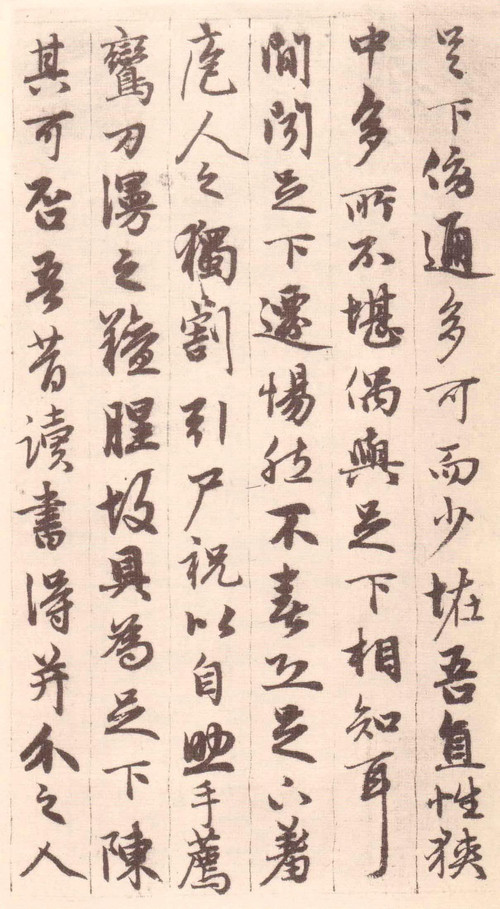 足下傍邇多可而少恠吾直性狹
中多所不堪偶與足下相知耳
間聞足下遷惕然不喜恐足下羞
庖人之獨割引尸祝以自助手薦
鸞刀漫之羶腥故具為足下陳
其可否吾昔讀書得并介之人